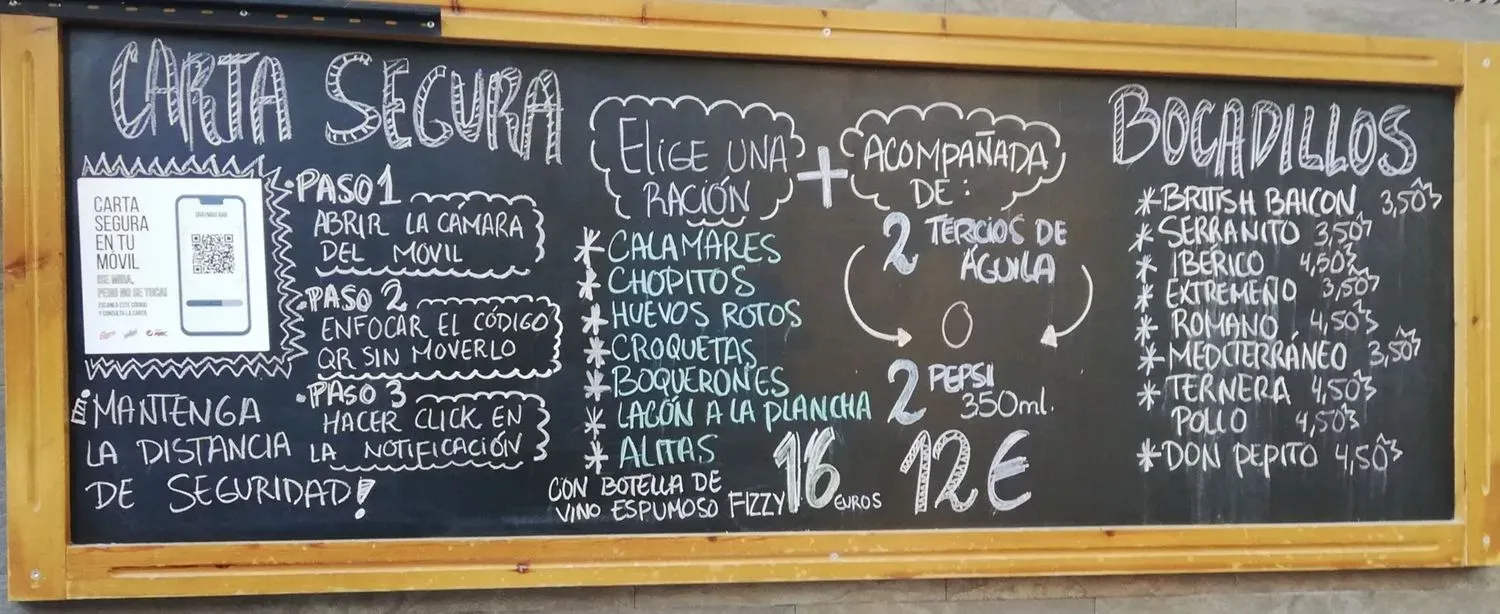 CARTA SEGURA
CARTA
SEGURA
EN TU
MOVIL
¡SE MIRA,
PERO NO SE TOCA!
ESCANEA ESTE CÓDIGO
Y CONSULTA LA CARTA
¡MANTENGA
LA DISTANCIA
DE SEGURIDAD!
·PASO 1
ABRIR LA CÁMARA
DEL MOVIL
·PASO 2
ENFOCAR EL CÓDIGO
QR SIN MOVERLO
·PASO 3
HACER CLICK EN
LA NOTIFICACIÓN
ELIGE UNA
RACIÓN
* CALAMARES
* CHOPITOS
* HUEVOS ROTOS
* CROQUETAS
* BOQUERONES
* LACÓN A LA PLANCHA
* ALITAS
CON BOTELLA DE
VINO ESPUMOSO FIZZY 16 EUROS
+
ACOMPAÑADA
DE:
2 TERCIOS DE
ÁGUILA
O
2 PEPSI
350ml.
12€
BOCADILLOS
* BRITISH BAICON 3,50
* SERRANITO 3,50
* IBÉRICO 4,50
* EXTREMEÑO 3,50
* ROMANO 4,50
* MEDITERRÁNEO 3,50
* TERNERA 4,50
POLLO 4,50
* DON PEPITO 4,50